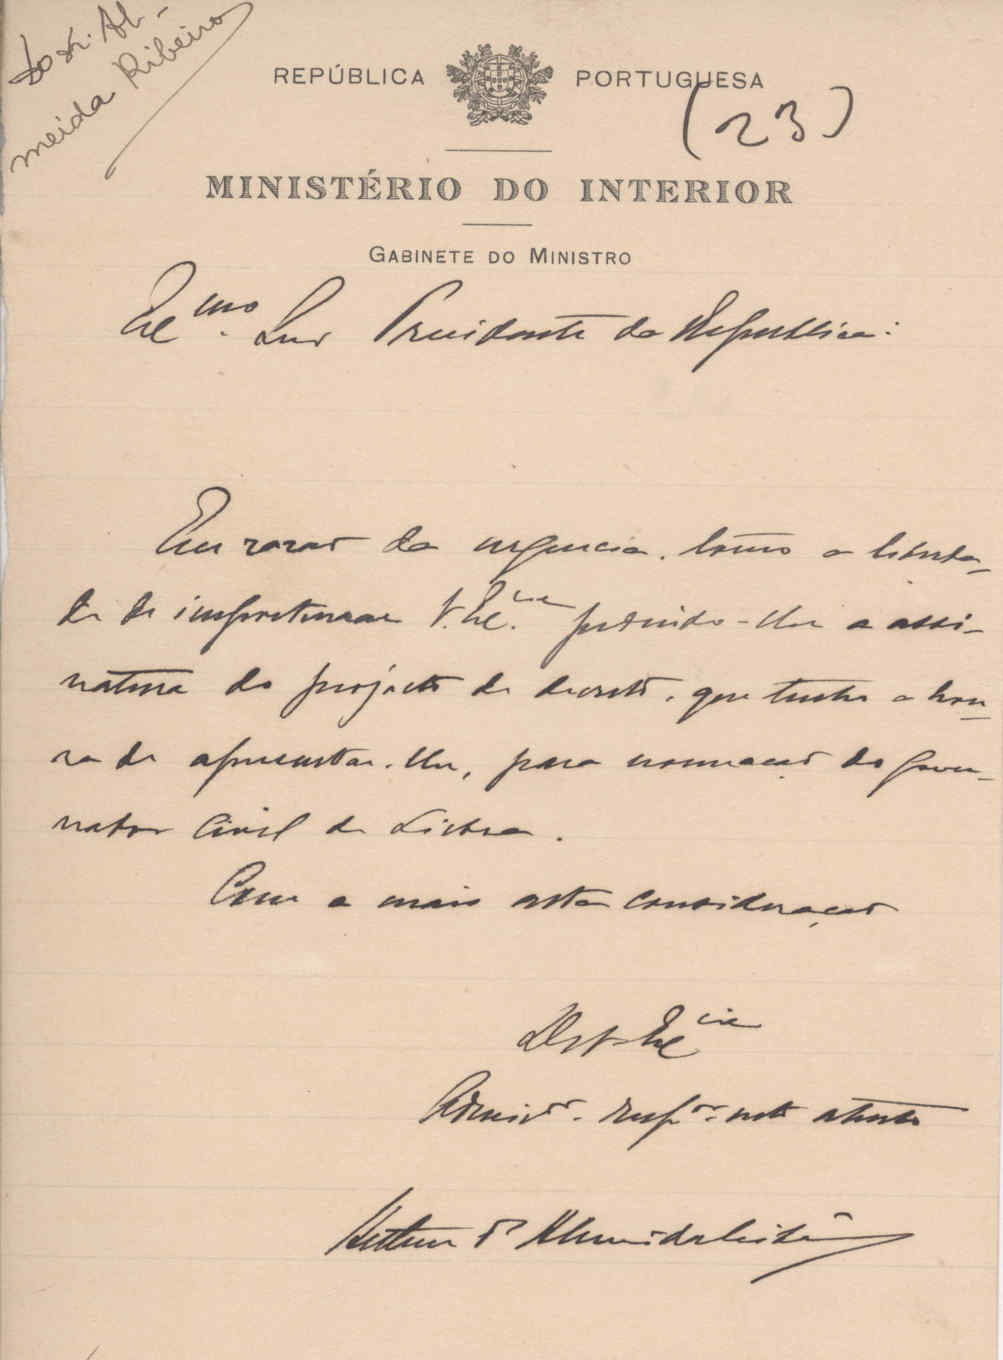 Do Sr. Al-
meida Ribeiro
REPÚBLICA PORTUGUESA
(23)
MINISTÉRIO DO INTERIOR
GABINETE DO MINISTRO
Exc.mo Snr Presidente da Republica:
Em razão da urgencia, tomo a liberda-
de de importunar V. Exc.cia pedindo-lhe a assi-
natura do projecto de decreto, que tenho a hon-
ra de apresentar-lhe, para nomeação do gover-
nador Civil de Lisboa.
Com a mais alta consideração
De V. Exc.cia
Admir.or resp.or mto atento